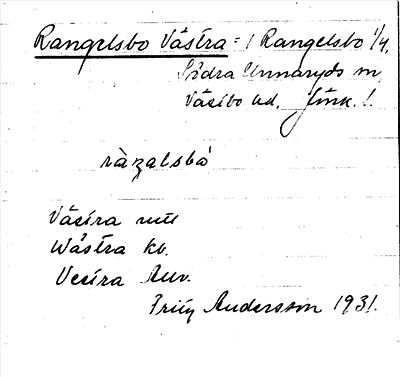 Rangelsbo Västra = 1 Rangelsbo 1/4,
Södra Unnaryds sn
Västbo hd, Jönk. l.
ràŋalsbå
Västra
Wästra kb.
Vestra
Andersson 1931.